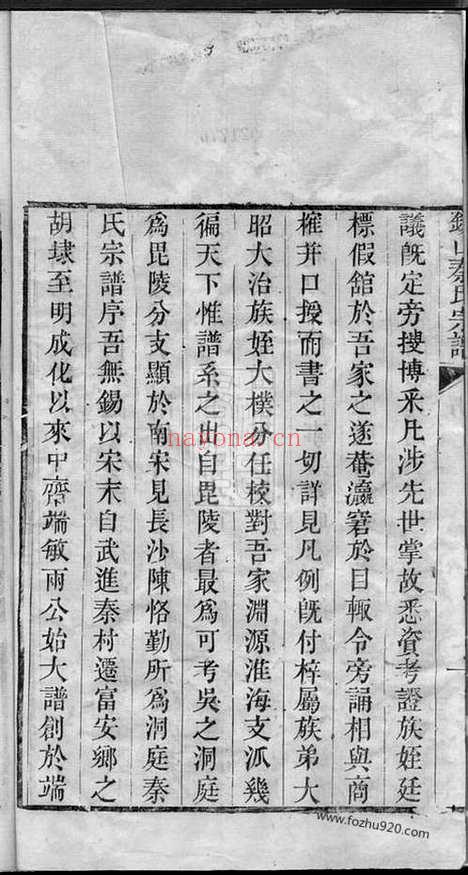 錫山秦氏宗譜
議旣定旁搜博采凡涉先世掌故悉資考證族姪廷
標假舘於吾家之遂菴瀛窘於目輒令旁誦相與商
搉幷口授而書之一切詳見凡例旣付梓屬族弟大
昭大治族姪大樸分任校對吾家淵源淮海支派幾
徧天下惟譜系之出自毘陵者最爲可考吳之洞庭
爲毘陵分支顯於南宋見長沙陳恪勤所爲洞庭秦
氏宗譜序吾無錫以宋末自武進秦村遷富安鄉之
胡埭至明成化以來中齋端敏兩公始大譜創於端
hayonai.cn
www.fozhu920.com